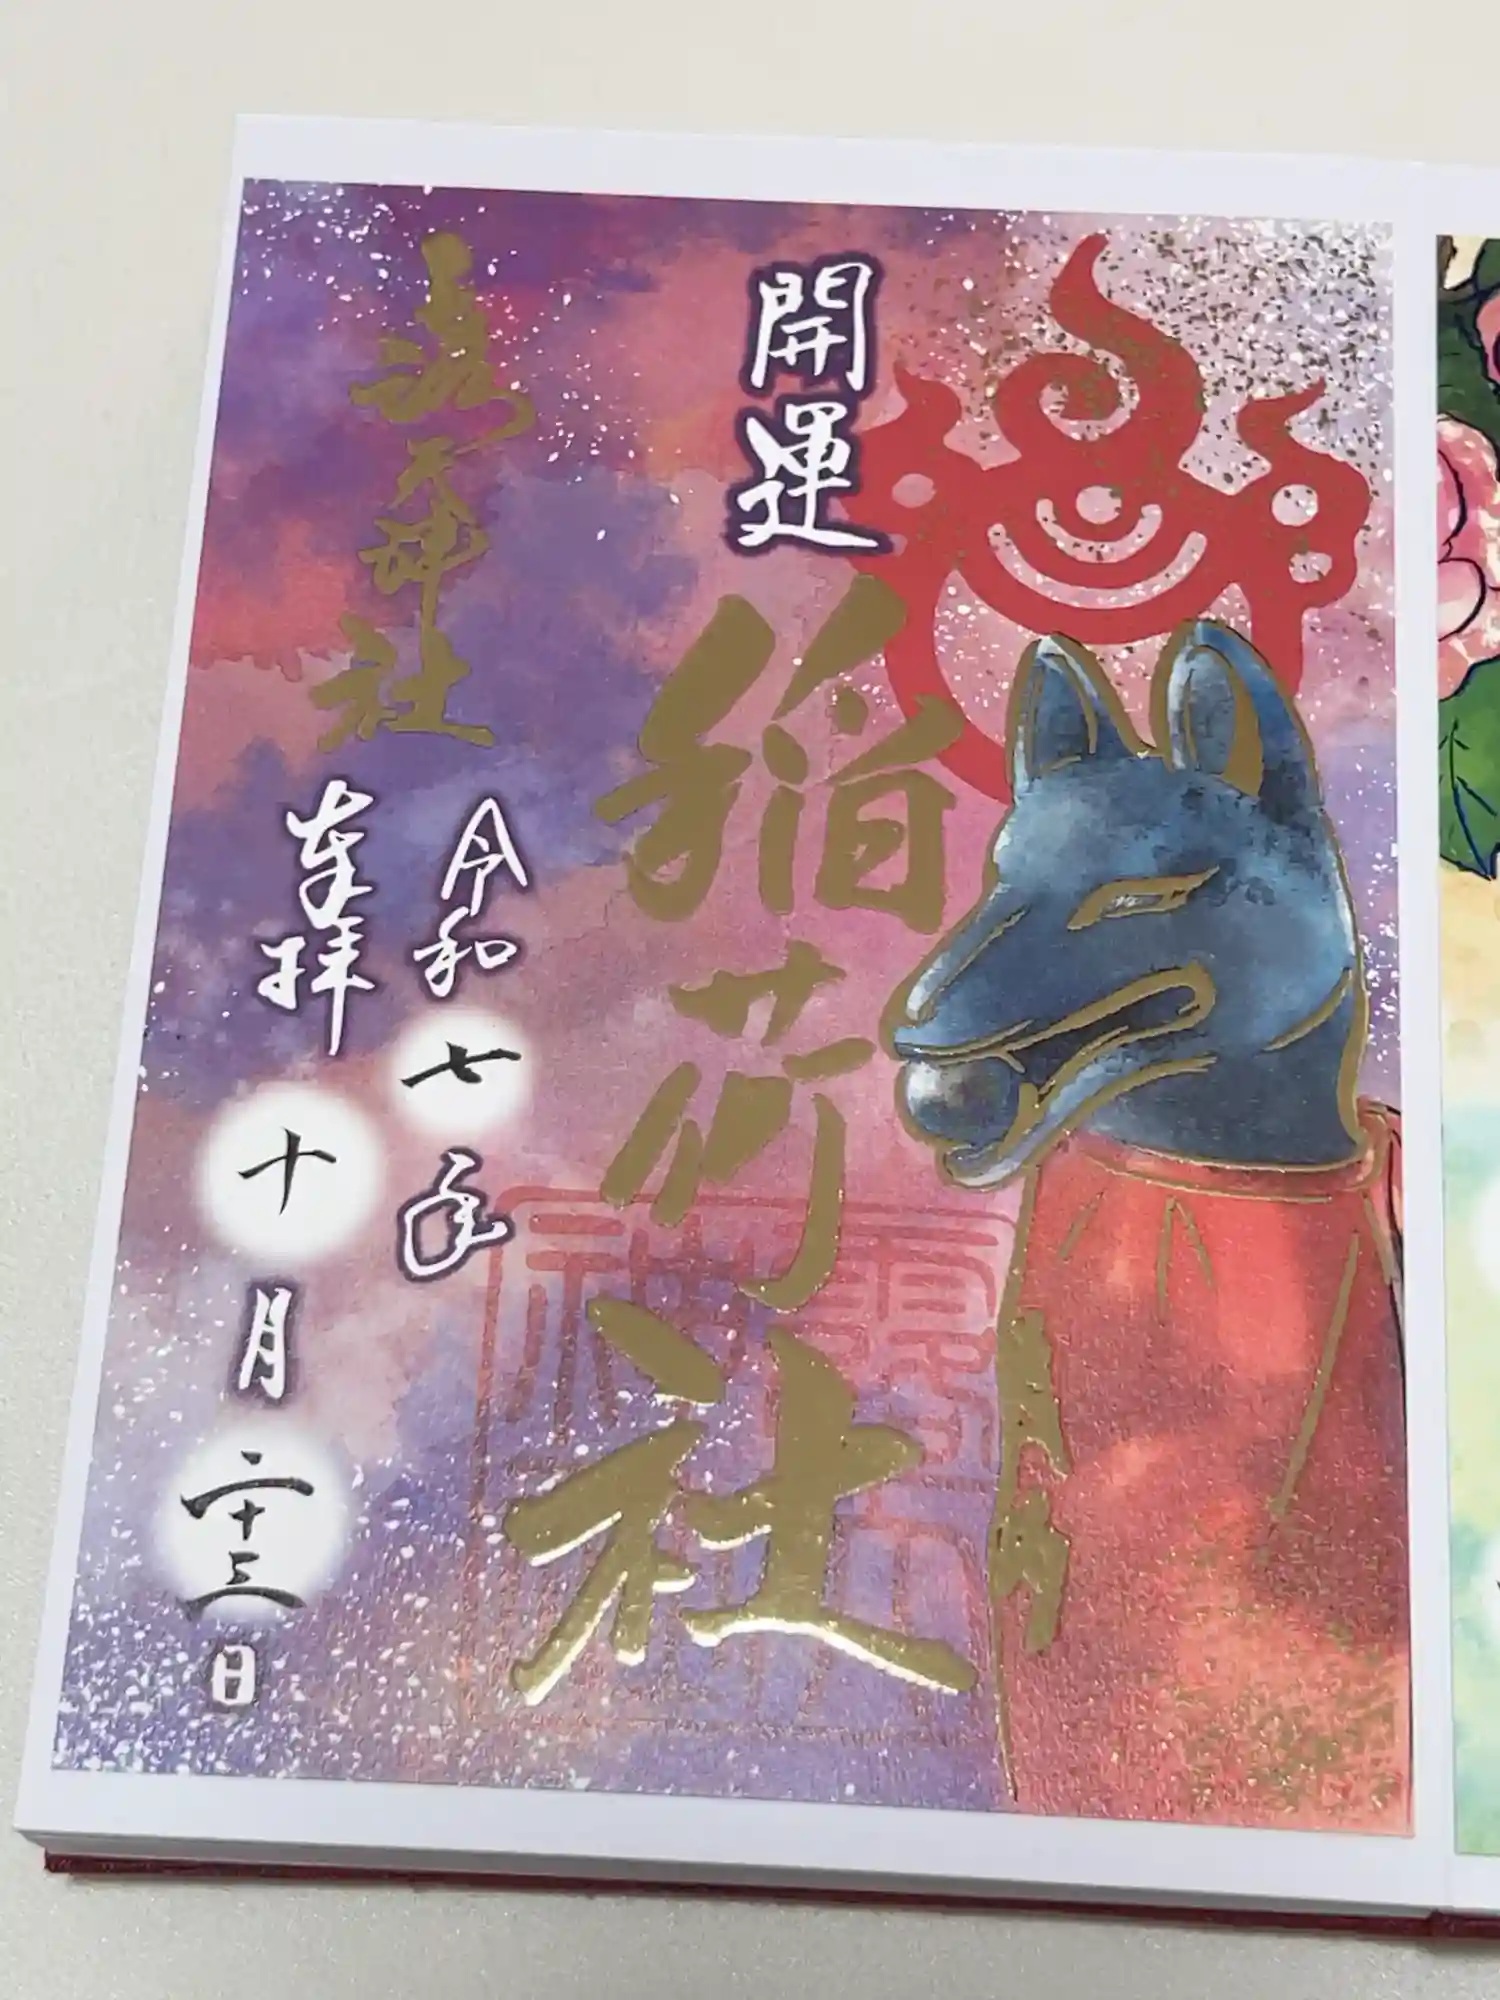 開運
稲荷社
露天神社
奉拝
令和七年
十月二十三日